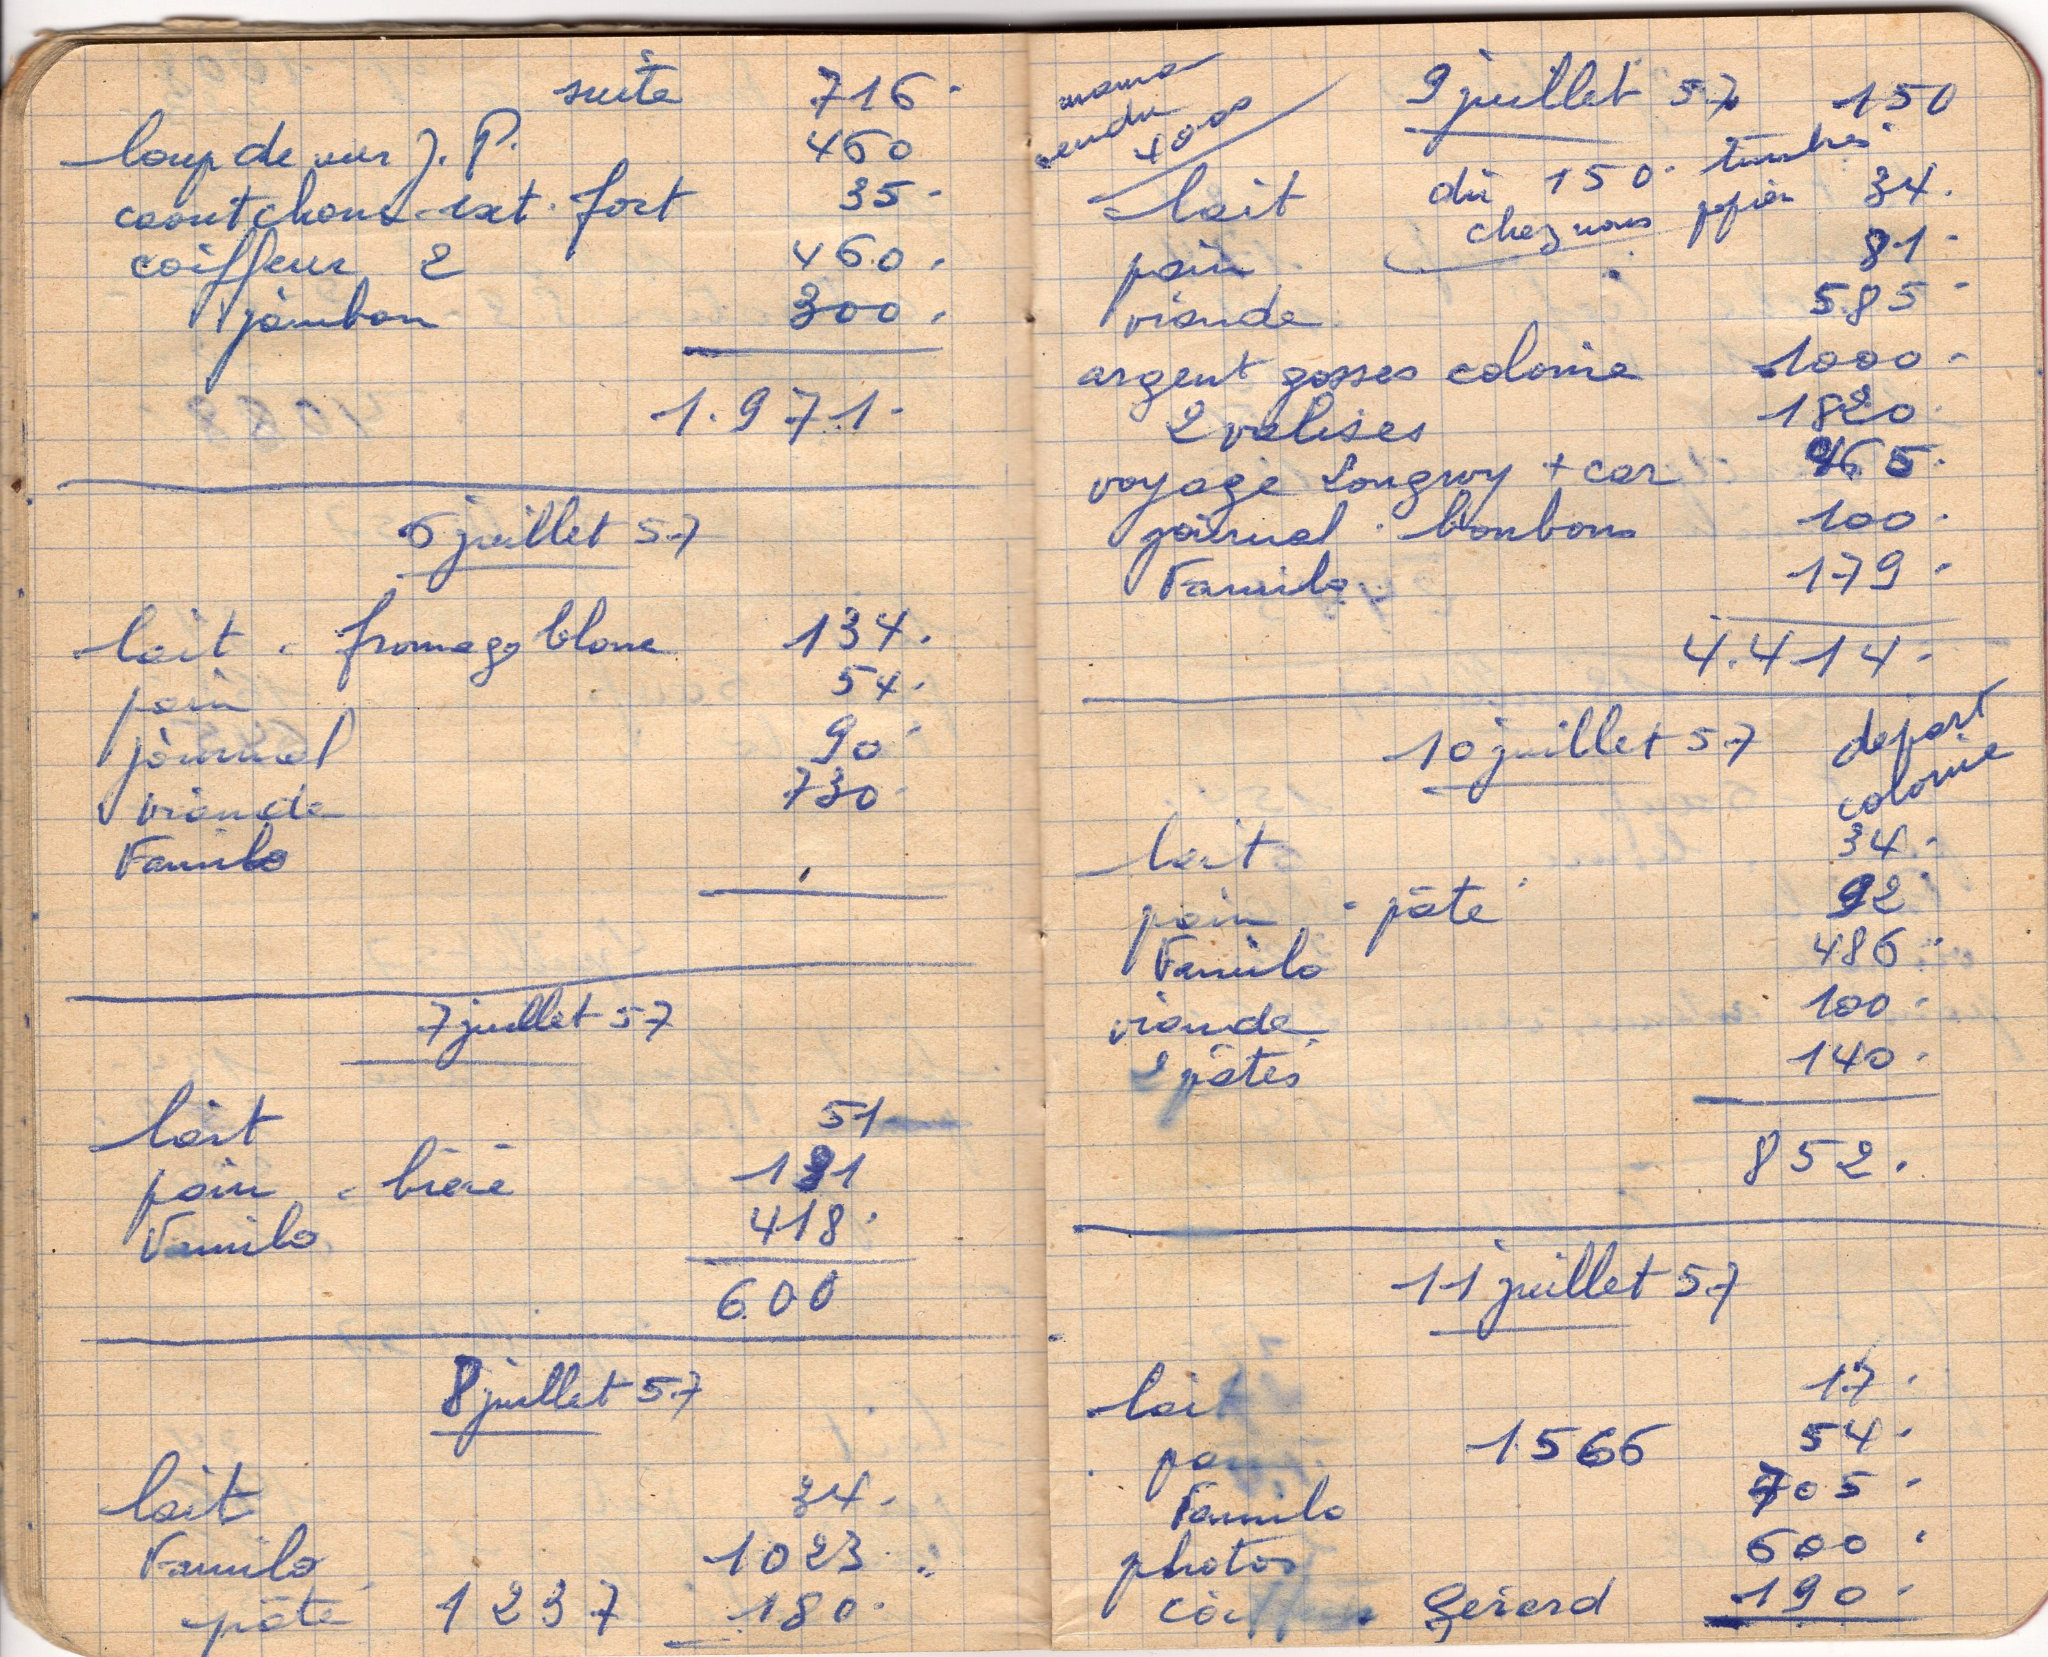 suite 716.
loup de mer J. P. 460
caoutchouc ext. fort 35.
coiffeur 2 460.
jambon 300.
1.971.
6 juillet 57
lait . fromage blanc 134.
pain 54.
journal 90.
viande 730.
Familo
7 juillet 57
lait 51
pain . bière 131
Familo 418.
600
8 juillet 57
lait 34.
Familo 1023.
pâté 1237 180.
mama
rendu
4000
9 juillet 57 150
dû 150. timbres
lait 34.
chez nous papier
pain 81.
viande 585.
argent gosses colonie 1000.
2 valises 1820.
voyage Longwy + car 465.
journal . bonbons 100.
Familo 179.
4.414.
10 juillet 57 depart
colonie
lait 34.
pain . pâte 92.
Familo 486.
viande 100.
2 pâtés 140.
852.
11 juillet 57
lait 17.
pain 1566 54.
Familo 705.
photos 600.
coiffeur Gérard 190.